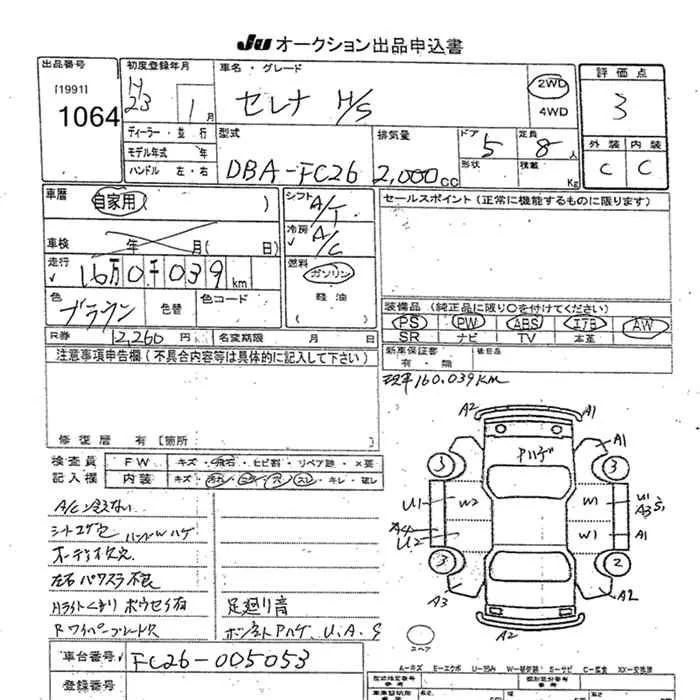 JU オークション出品申込書
出品番号
[1991]
1064
初度登録年月
H 23 1 月
車名・グレード
セレナ H/S
2WD
4WD
評価点
3
外装 内装
C C
ディーラー・並行
モデル年式 年
ハンドル 左・右
型式
DBA-FC26
排気量
2,000 cc
ドア 5
形状
定員 8 人
積載 Kg
車歴 自家用( )
車検 年 月( 日)
走行
√ 16万0千039 km
色 ブラウン 色替 色コード
R券 12,260 円 名変期限 月 日
シフト A/T
冷房 √ A/C
燃料 ガソリン
軽油
( )
セールスポイント(正常に機能するものに限ります)
装備品(純正品に限り○を付けてください)
PS PW ABS エアB AW
SR ナビ TV 本革
新車保証書 有・無
後日品
現車160.039KM
注意事項申告欄(不具合内容等は具体的に記入して下さい)
修復歴 有 [箇所: ]
検査員 FW キズ・飛石・ヒビ割・リペア跡・×要
記入欄 内装 キズ・汚れ・コゲ・穴・スレ・キレ・破レ
A/C冷えない
シートコゲ穴 ハンドルWハゲ
オーディオ欠穴
左右パワスラ不良
Hライトくもり ホウセイ有
Rワイパーブレード欠
足廻り音
ボンネットPハゲ、U.A.S
車台番号 √ FC26-005053
登録番号
A2 A1
Pハゲ
3 3 A1
U1 W2 W1 U1
A3 S1
A4
U2 W1 A1
3 2
A3 A2
A2
スペア
A-キズ E-エクボ U-凹み W-補修跡 S-サビ C-腐食 XX-交換済
型式指定番号 類別区分番号
参考 参考